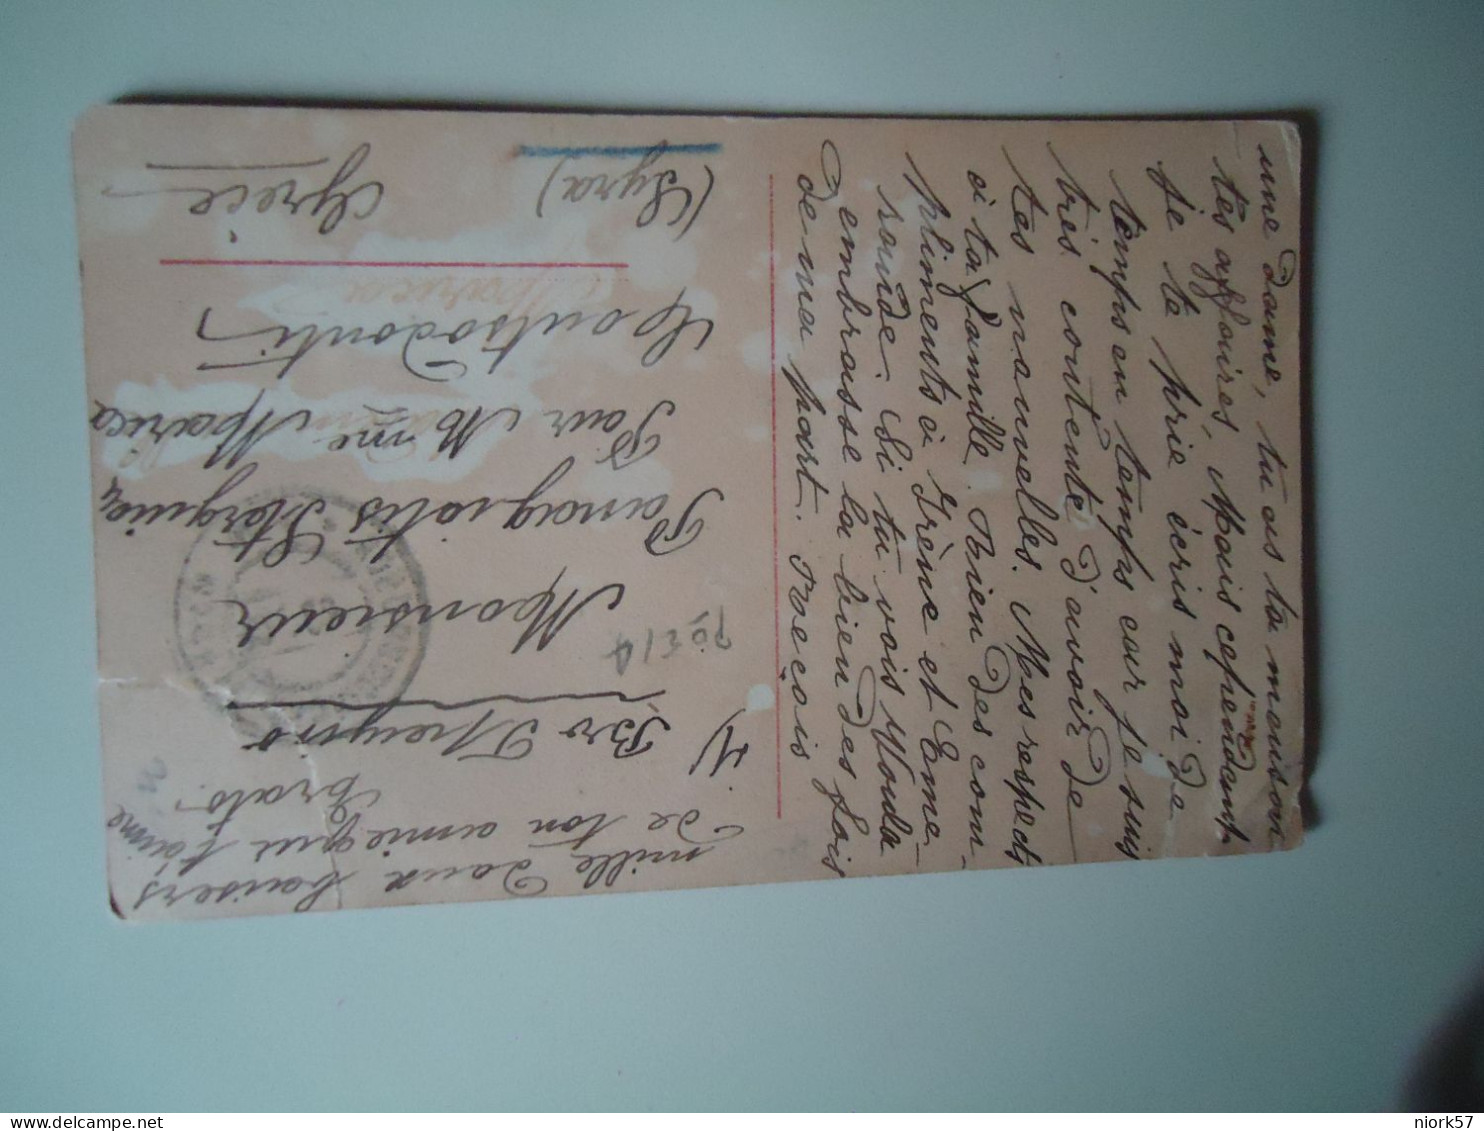 une dame, tu as ta maison
tes affaires, Mais cependant
je te prie écris moi de
temps en temps car je suis
très contente d'avoir de
tes nouvelles. Mes respects
à ta famille. Bien des com-
pliments à Irène et Eme-
raude. Si tu vois Voula
embrasse la bien des fois
de ma part. Reçois
mille doux baisers
de ton amie qui t'aime
Erato.
Monsieur
Panagiotis Starguia
Pour Mme Marica
Coutsodonti
(Syra)
Grèce
niork57